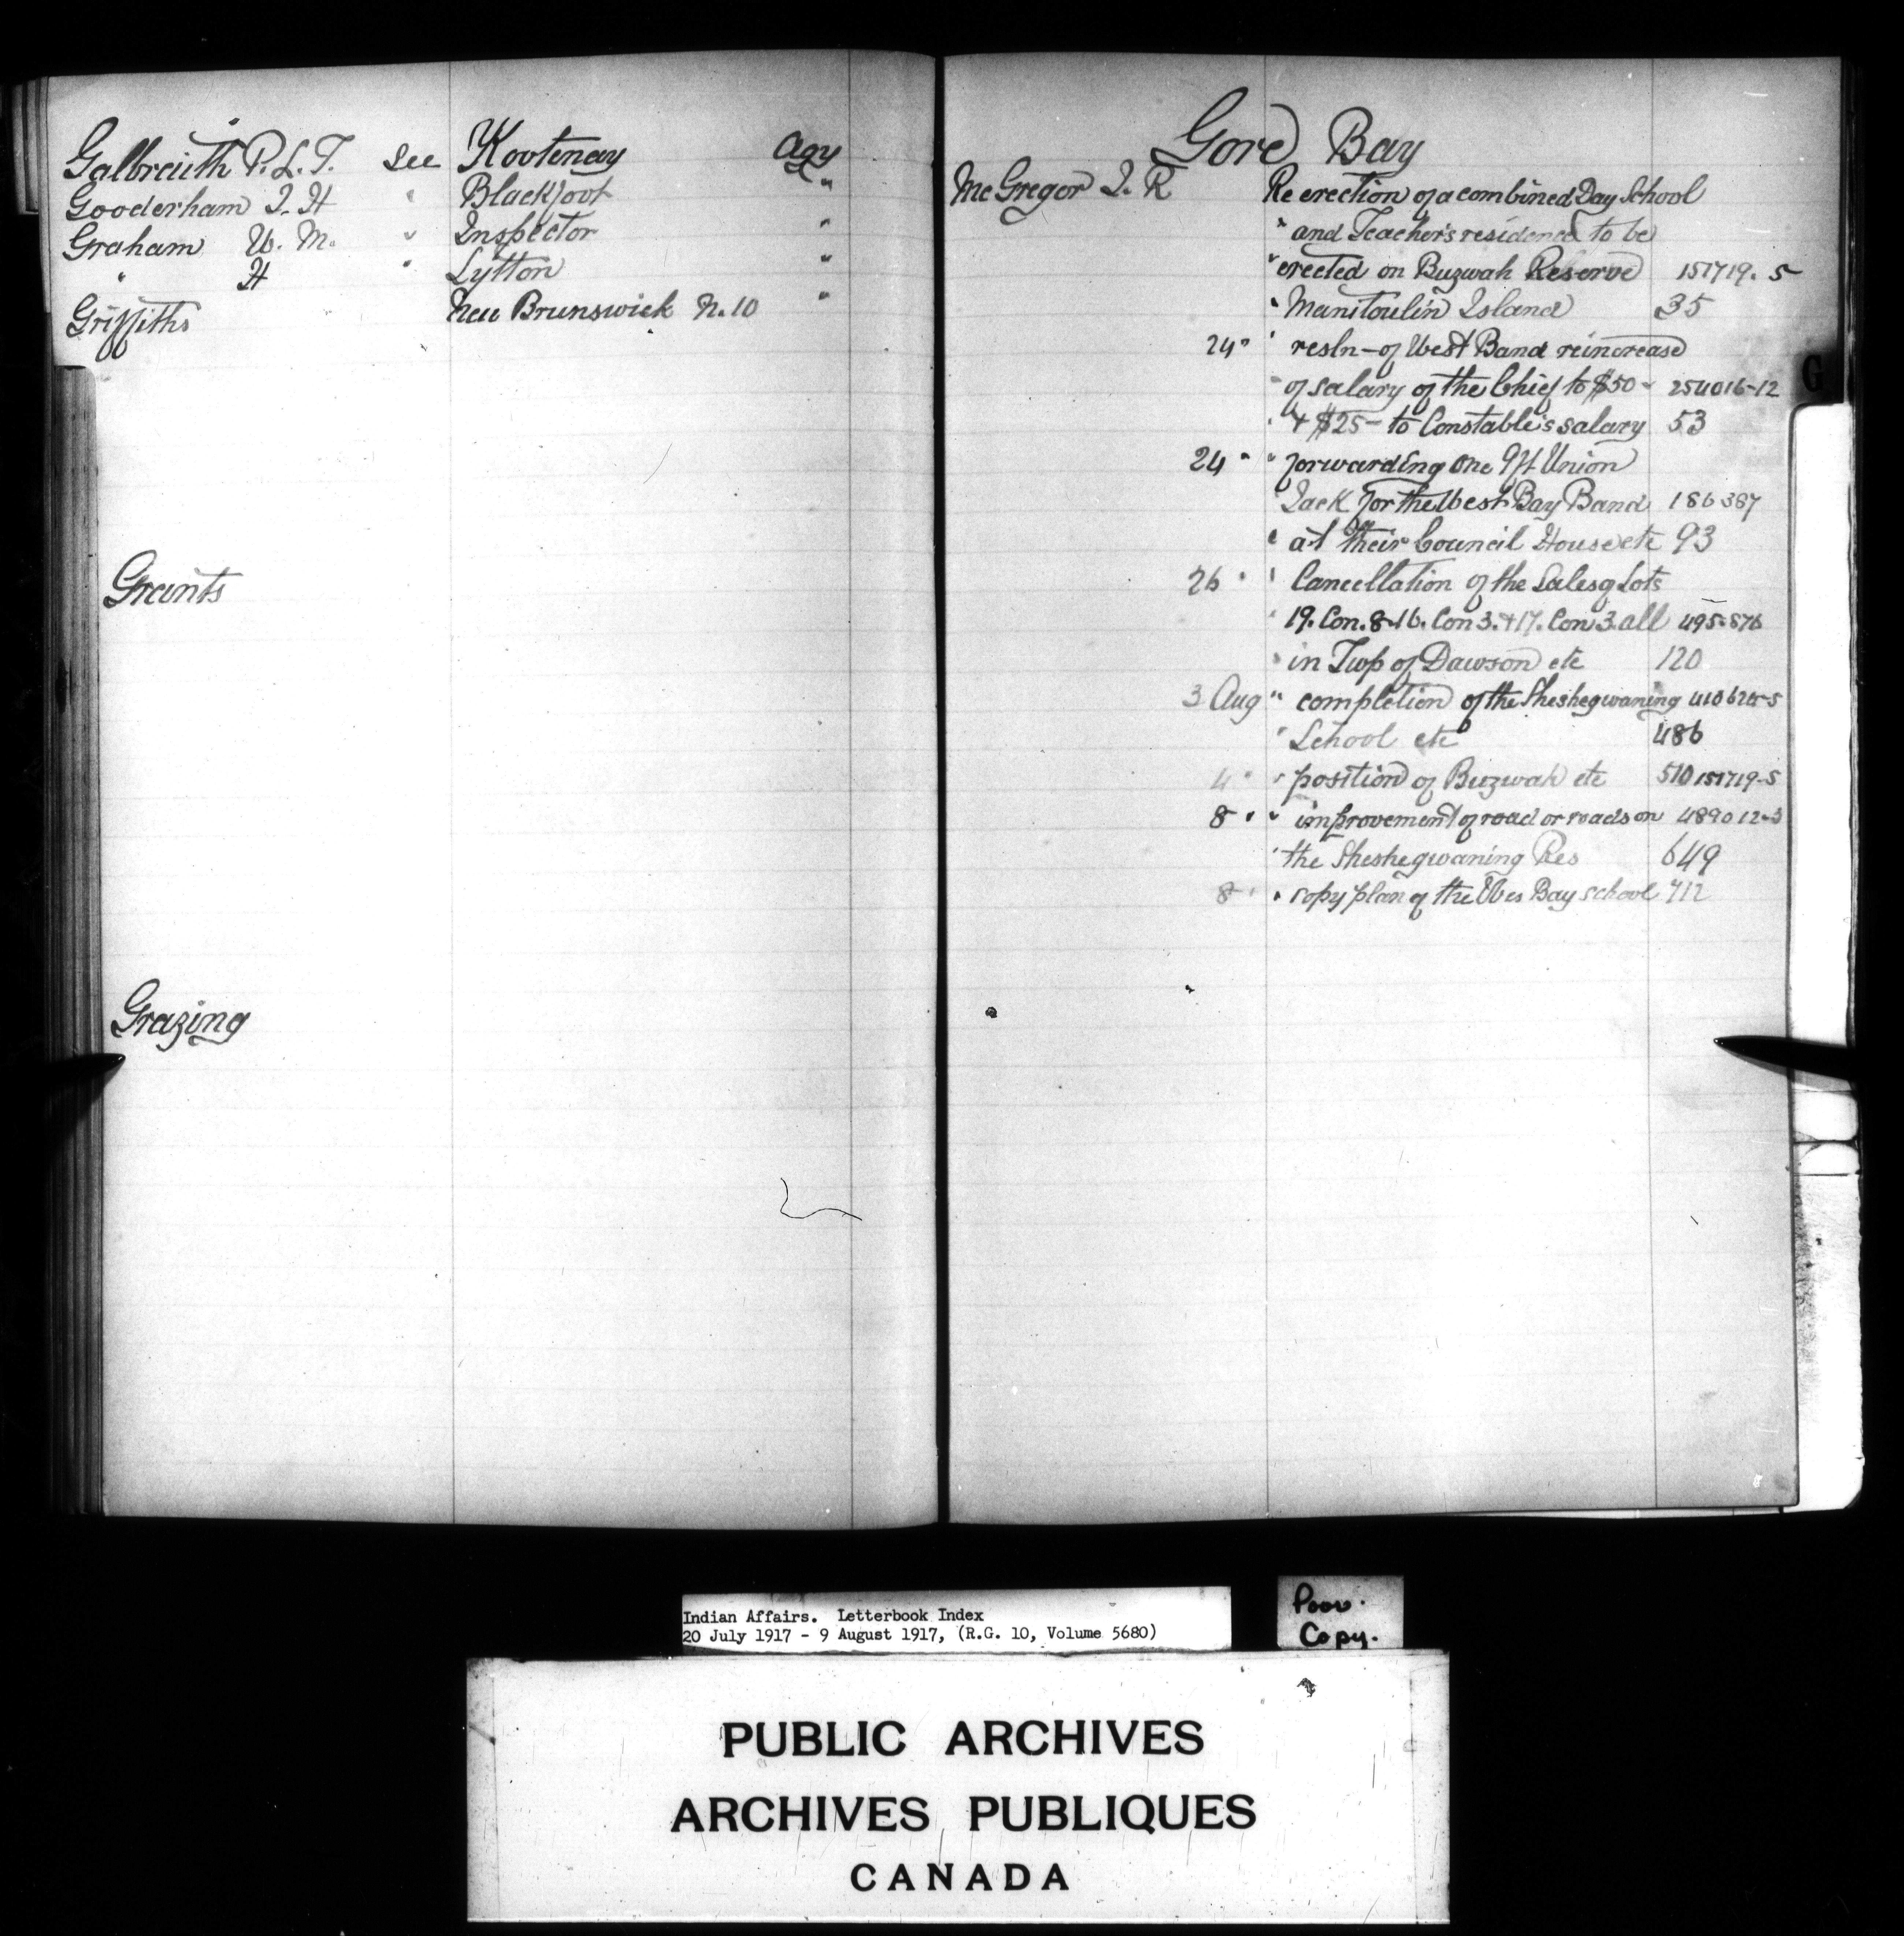 Galbraith P. L. T. See Kootenay Agy
Gooderham J. H " Blackfoot "
Graham W. M. " Inspector "
" H " Lytton "
Griffiths New Brunswick N. 10 "
Grants
Grazing
Gore Bay
McGregor J. R Re erection of a combined Day School
" and Teacher's residence to be
" erected on Buzwah Reserve 151719-5
" Manitoulin Island 35
24 " " resln - of West Band re increase
" of salary of the Chief to $50 - 254016-12
" + $25 - to Constable's salary 53
24 " " forwarding one 9ft Union
Jack for the West Bay Band 186387
" at their Council House etc 93
26 " " Cancellation of the Sales of Lots
" 19. Con. 8-16. Con 3. + 17. Con 3. all 495-876
" in Twp of Dawson etc 120
3 Aug " completion of the Sheshegwaning 410624-5
" School etc 486
4 " " position of Buzwah etc 510 151719-5
8 " " improvement of road or roads on 489012-3
" the Sheshegwaning Res 649
8 " " copy plan of the Wes Bay school 712
G
Indian Affairs. Letterbook Index
20 July 1917 - 9 August 1917, (R.G. 10, Volume 5680)
Poor.
Copy.
PUBLIC ARCHIVES
ARCHIVES PUBLIQUES
CANADA